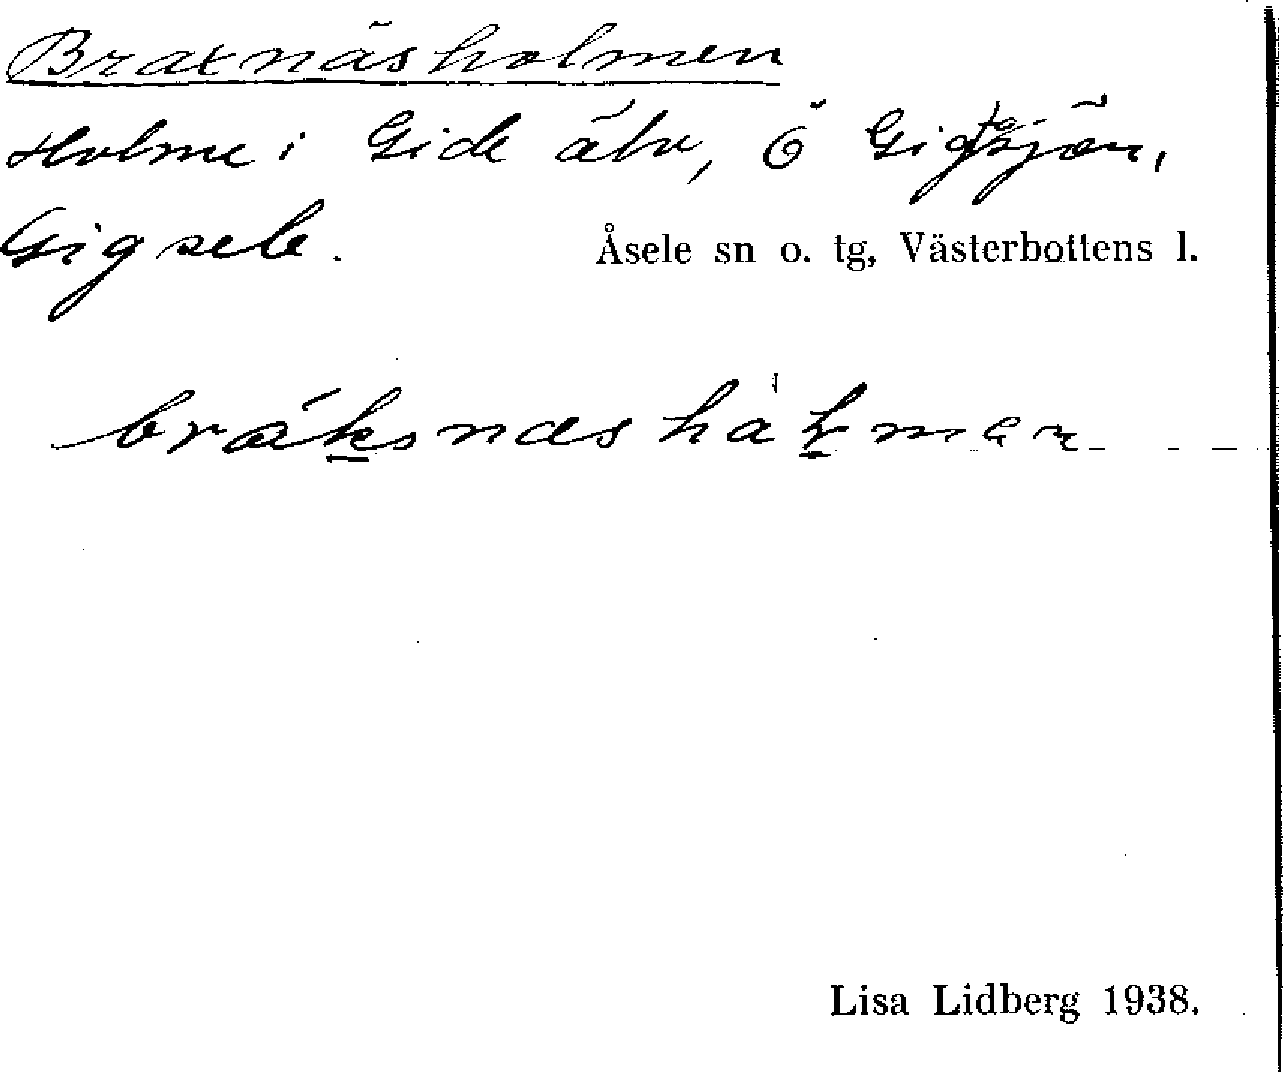 Braxnäsholmen
Holme i Gide älv, Ö Gigsjön,
Gigsele. Åsele sn o. tg, Västerbottens l.
bráksnæshàɫmen
Lisa Lidberg 1938.